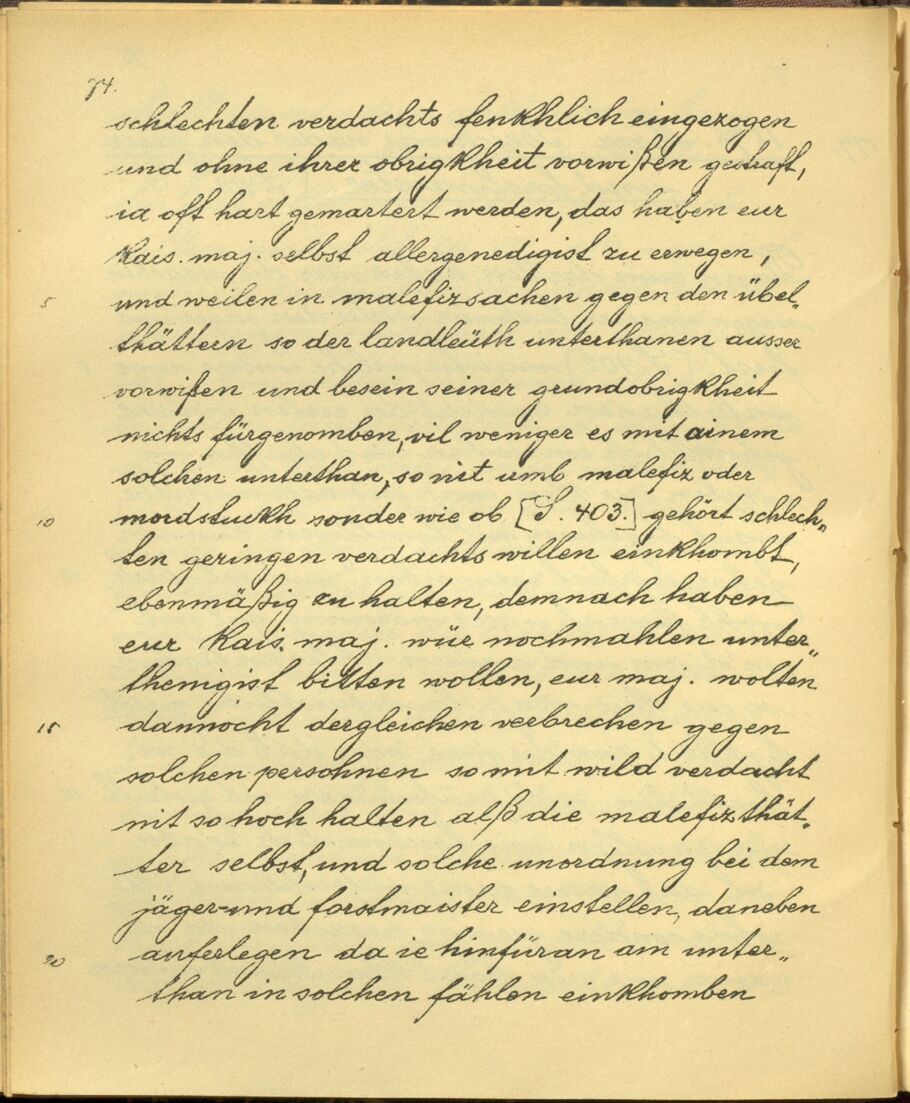 74.
schlechten verdachts fenkhlich eingezogen
und ohne ihrer obrigkheit vorwißen gestraft,
ia oft hart gemartert werden, das haben eur
kais. maj. selbst allergenedigist zu erwegen,
5 und weilen in malefizsachen gegen den übel„
thättern so der landleüth unterthanen ausser
vorwißen und besein seiner grundobrigkheit
nichts fürgenomben, vil weniger es mit ainem
solchen unterthan, so nit umb malefiz oder
10 mordstuckh sonder wie ob [S. 403.] gehört schlech„
ten geringen verdachts willen einkhombt,
ebenmäßig zu halten, demnach haben
eur kais. maj. wür nochmahlen unter„
thenigist bitten wollen, eur maj. wolten
15 dannocht dergleichen verbrechen gegen
solchen persohnen so mit wild verdacht
nit so hoch halten alß die malefizthät„
ter selbst, und solche unordnung bei dem
jäger- und forstmaister einstellen, daneben
20 auferlegen da ie hinfüran ain unter„
than in solchen fählen einkhomben